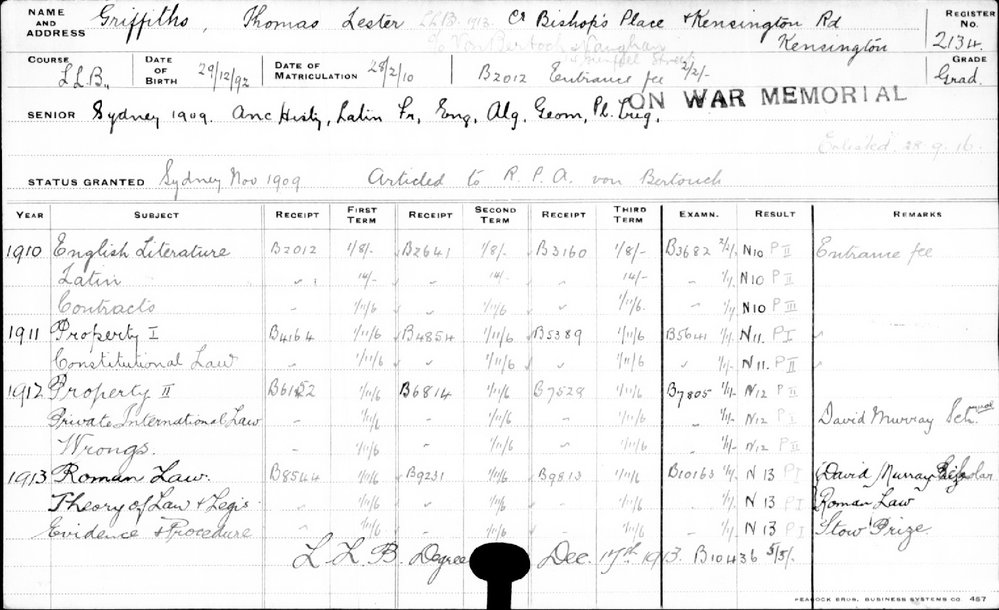 NAME AND ADDRESS Griffiths, Thomas Lester LL.B. 1913. Cr Bishop's Place & Kensington Rd REGISTER No.
c/o Von Bertouch & Vaughan Kensington 2134.
Grenfell Street
COURSE LLB., DATE OF BIRTH 29/12/92 DATE OF MATRICULATION 28/2/10 B2012 Entrance fee 2/2/- GRADE Grad.
ON WAR MEMORIAL
SENIOR Sydney 1909. Anc Histy, Latin Fr, Eng, Alg, Geom, Pl. Trig.
Enlisted 28.9.16.
STATUS GRANTED Sydney Nov 1909 Articled to R. P. A. von Bertouch
YEAR SUBJECT RECEIPT FIRST TERM RECEIPT SECOND TERM RECEIPT THIRD TERM EXAMN. RESULT REMARKS
1910 English Literature B2012 1/8/- B2641 1/8/- B3160 1/8/- B3682 2/1/. N10 P II Entrance fee
Latin " 14/- " 14/- " 14/- " 1/1/. N10 P II
Contracts " 1/11/6 " 1/11/6 " 1/11/6. " 1/1/. N10 P III
1911 Property I B4164 1/11/6 B4854 1/11/6 B5389 1/11/6 B5641 1/1/. N11. P I "
Constitutional Law " 1/11/6 " 1/11/6 " 1/11/6 " 1/1/. N11. P II
1912 Property II B6152 1/11/6 B6814 1/11/6 B7529 1/11/6 B7805 1/1/- N12 P II
Private International Law " 1/11/6 " 1/11/6 " 1/11/6 " 1/1/- N12 P I David Murray Sch.
Wrongs. " 1/11/6 " 1/11/6 " 1/11/6 " 1/1/- N12 P II
1913 Roman Law. B8544 1/11/6 B9231 1/11/6 B9813 1/11/6 B10163 1/1/. N 13 P I David Murray Scholar
Theory of Law & Legis. " 1/11/6 " 1/11/6 " 1/11/6 " 1/1/. N 13 P I Roman Law
Evidence & Procedure " 1/11/6 " 1/11/6 " 1/11/6 " 1/1/. N 13 P I Stow Prize.
L L B. Degree Dec. 17th 1913. B10436 5/5/.
PEACOCK BROS. BUSINESS SYSTEMS CO. 457